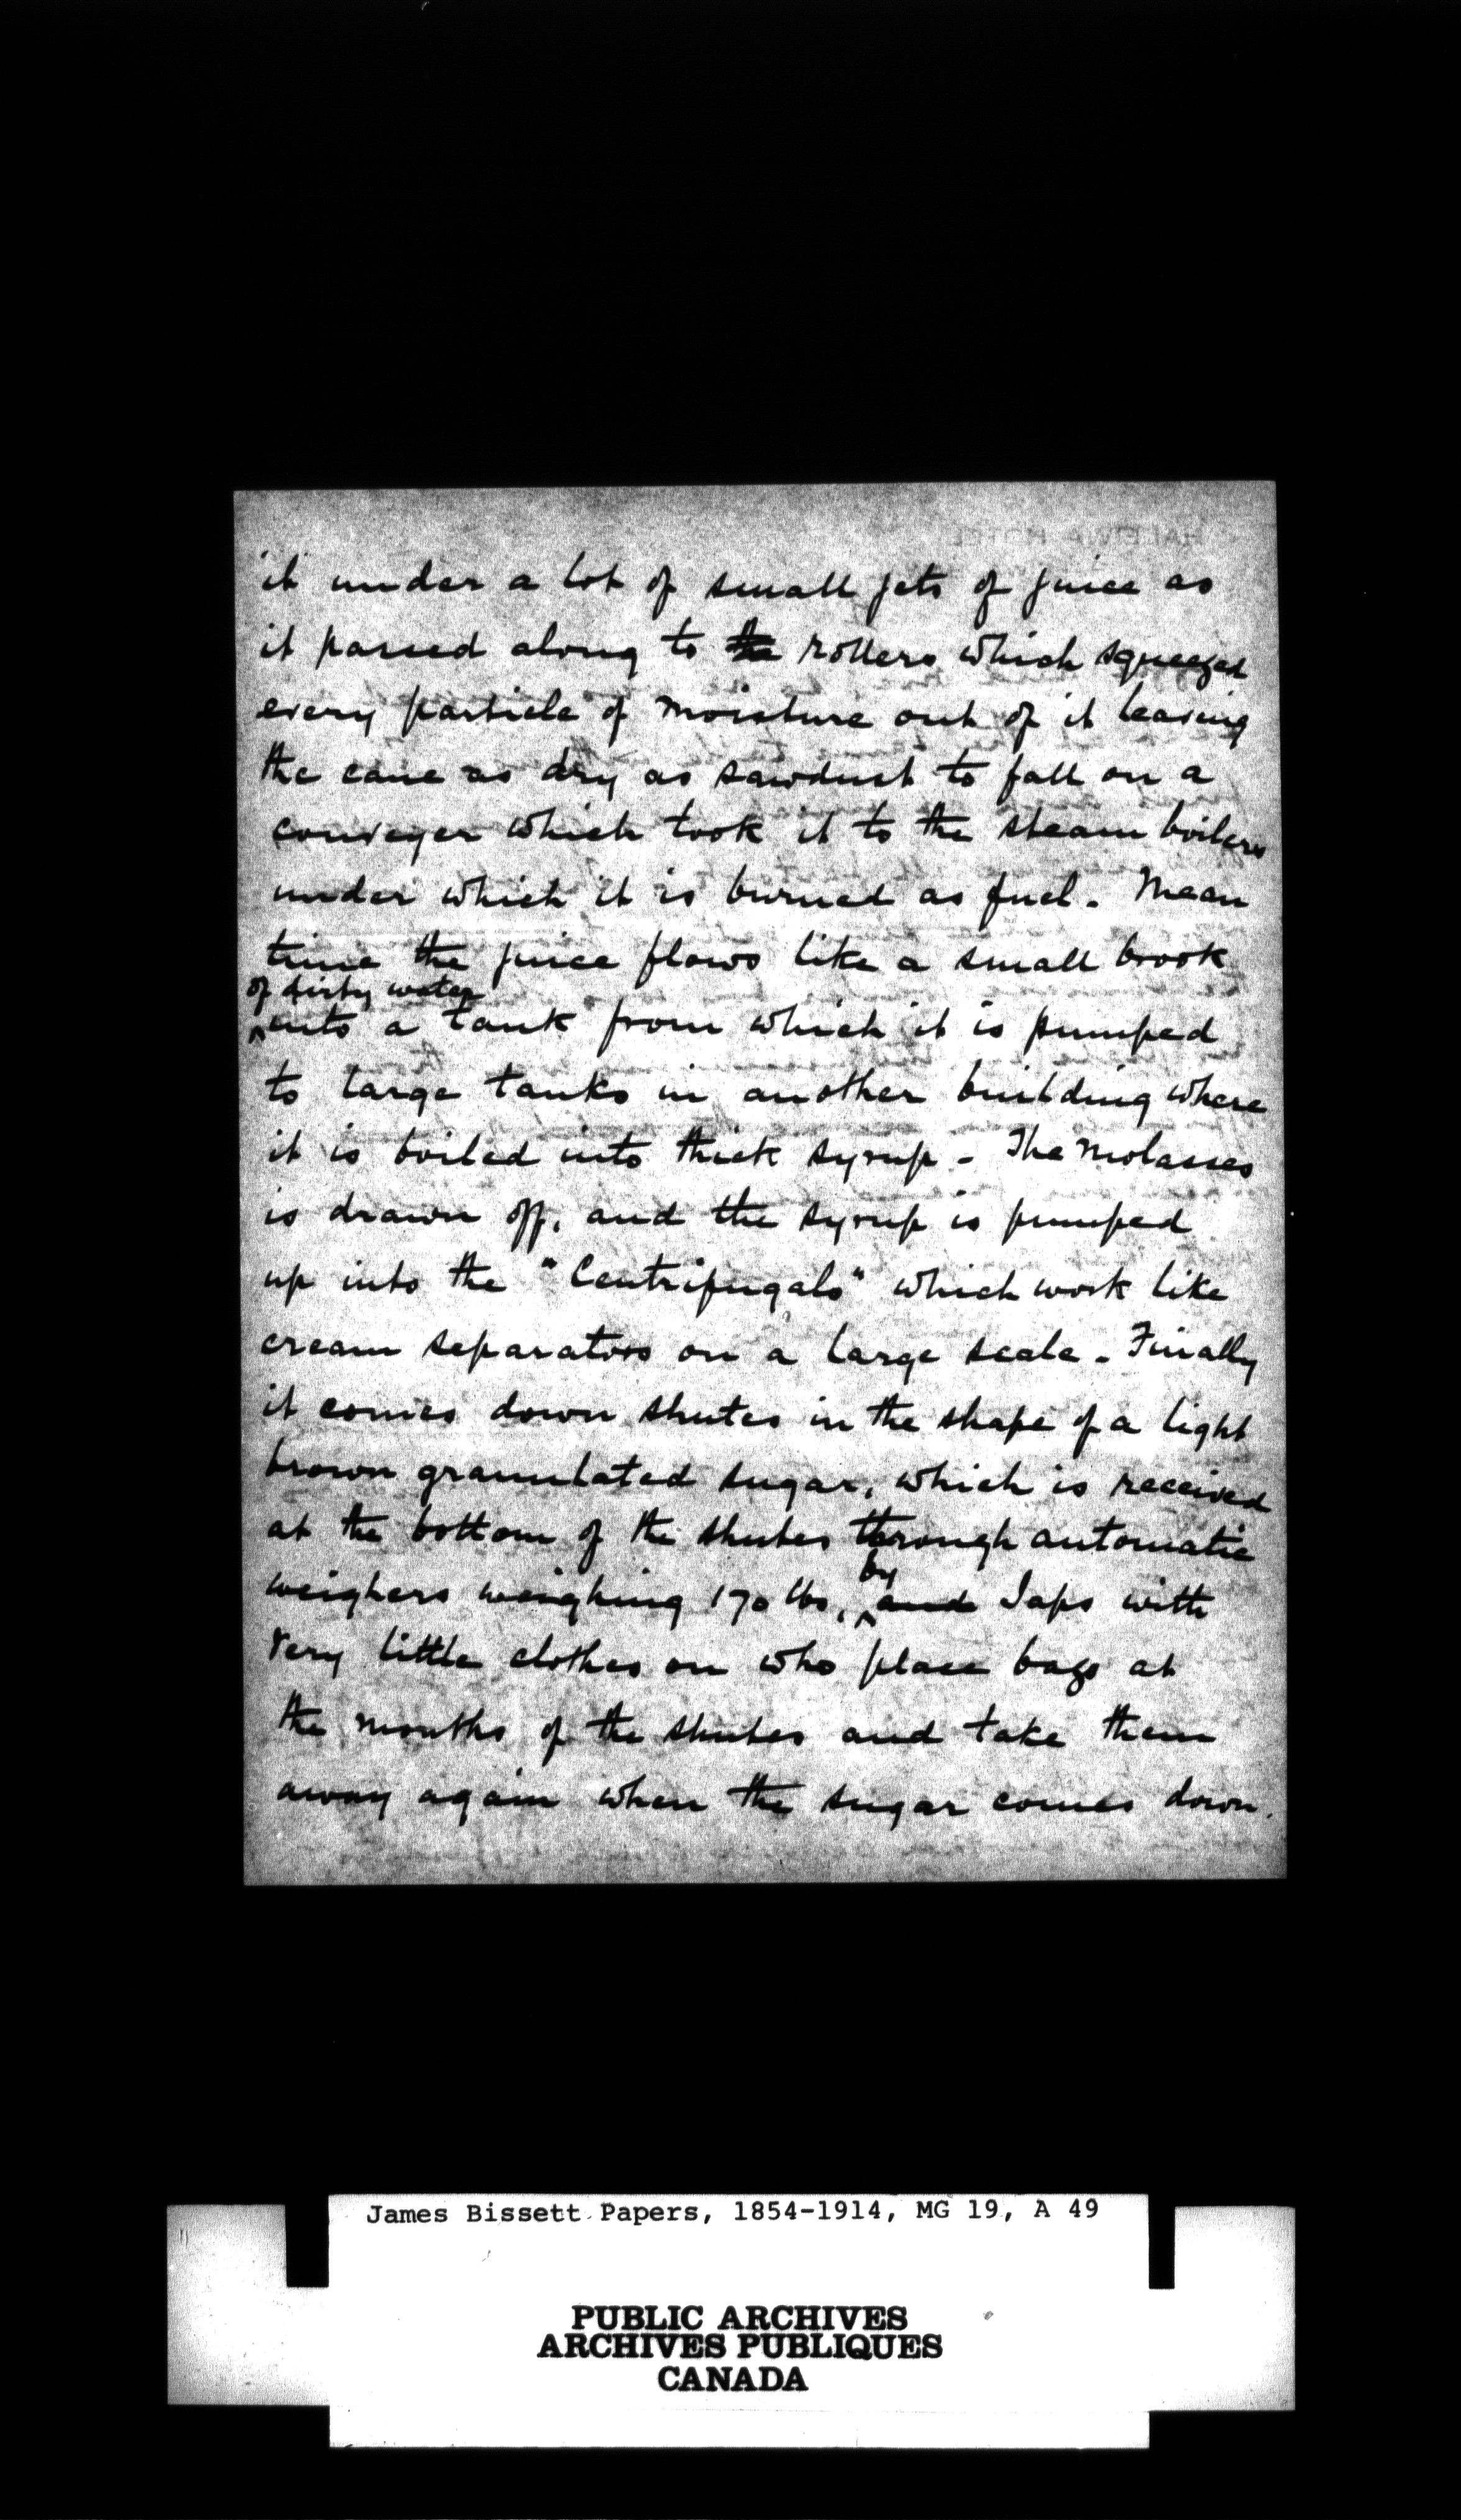 it under a lot of small jets of juice as
it passed along to the rollers which squeezed
every particle of moisture out of it leaving
the cane as dry as sawdust to fall on a
conveyer which took it to the steam boilers
under which it is burned as fuel. Mean
time the juice flows like a small brook
of dirty water
into a tank from which it is pumped
to large tanks in another building where
it is boiled into thick syrup - The molasses
is drawn off, and the syrup is pumped
up into the "Centrifugals" which work like
cream separators on a large scale. Finally
it comes down shutes in the shape of a light
brown granulated sugar, which is received
at the bottom of the shutes through automatic
by
weighers weighing 170 lbs, and Japs with
very little clothes on who place bags at
the mouths of the shutes and take them
away again when the sugar comes down.
James Bissett Papers, 1854-1914, MG 19, A 49
PUBLIC ARCHIVES
ARCHIVES PUBLIQUES
CANADA